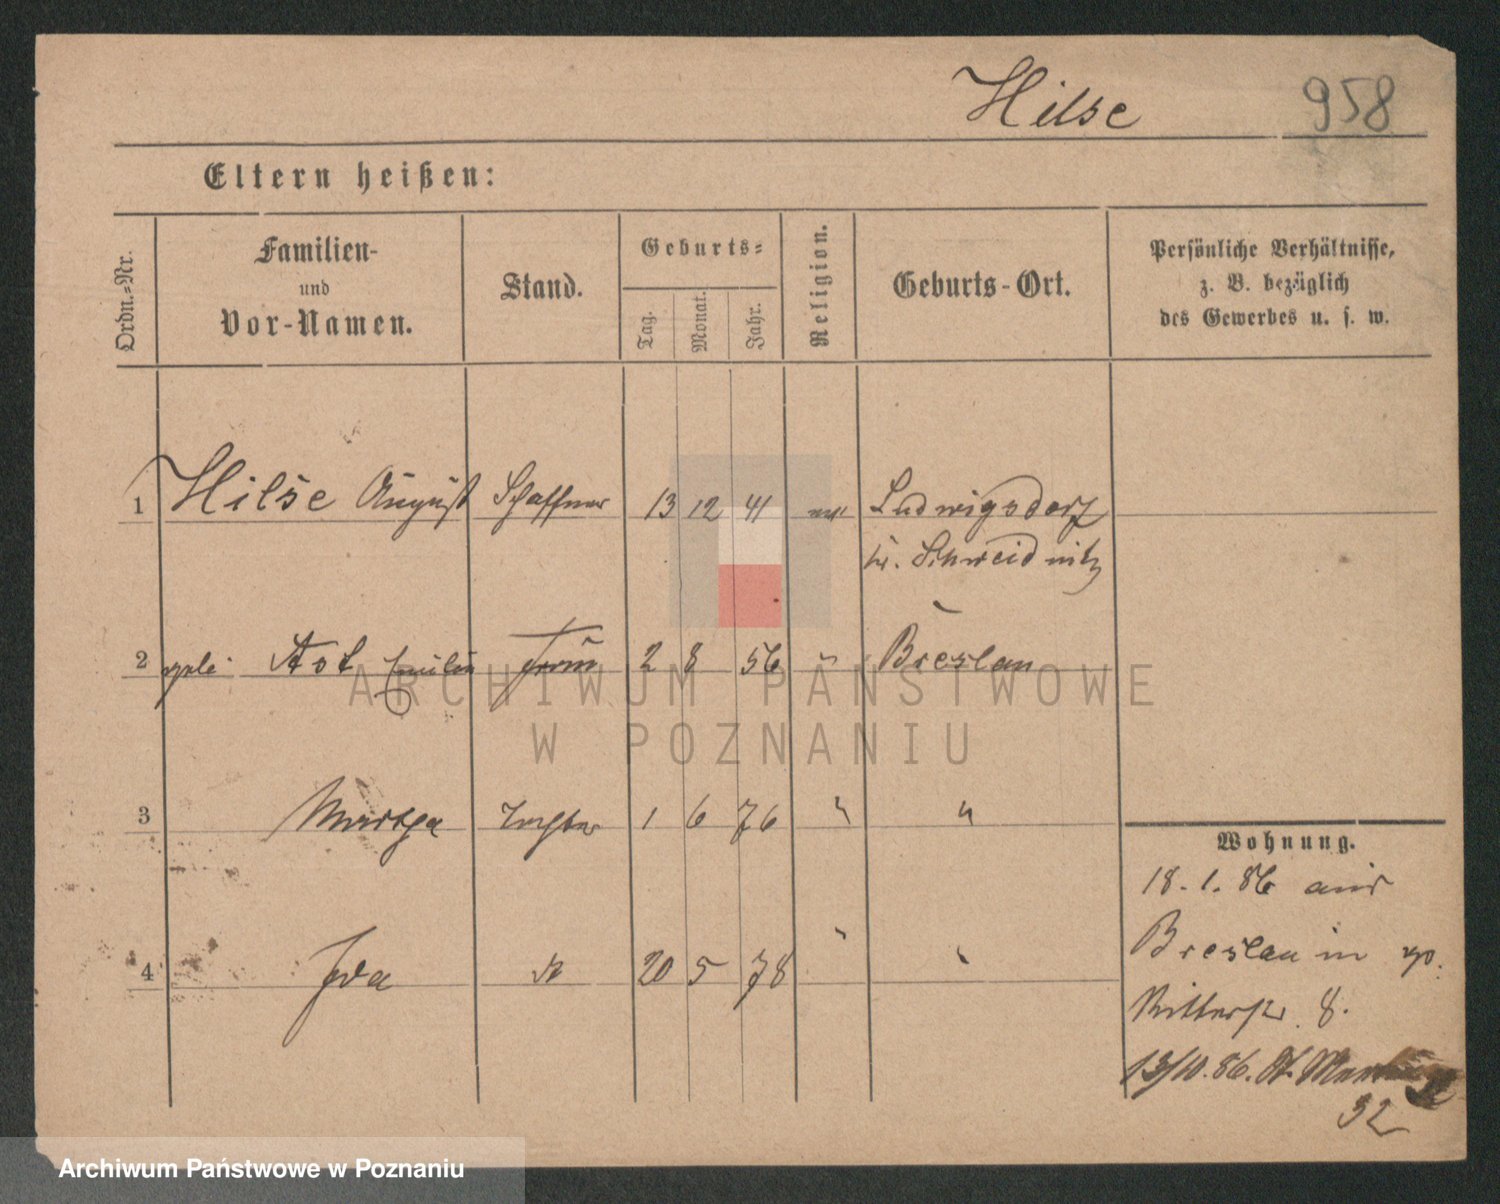 Hilse 958
Eltern heißen:
Ordn.-Nr.
Familien-
und
Vor-Namen.
Stand.
Geburts-
Tag.
Monat.
Jahr.
Religion.
Geburts-Ort.
Persönliche Verhältnisse,
z. B. bezüglich
des Gewerbes u. s. w.
1 Hilse August Schaffner 13 12 41 Ludwigsdorf
Kr. Schweidnitz
2 Frau 2 8 56 " Breslau
3 Martha Tochter 1 6 76 " "
4 Ida 20 5 78 " "
Wohnung.
18.1.86 aus
Breslau in
Ritterstr. 8.
13/10.86. St. Martin
32
ARCHIWUM PAŃSTWOWE
W POZNANIU
Archiwum Państwowe w Poznaniu